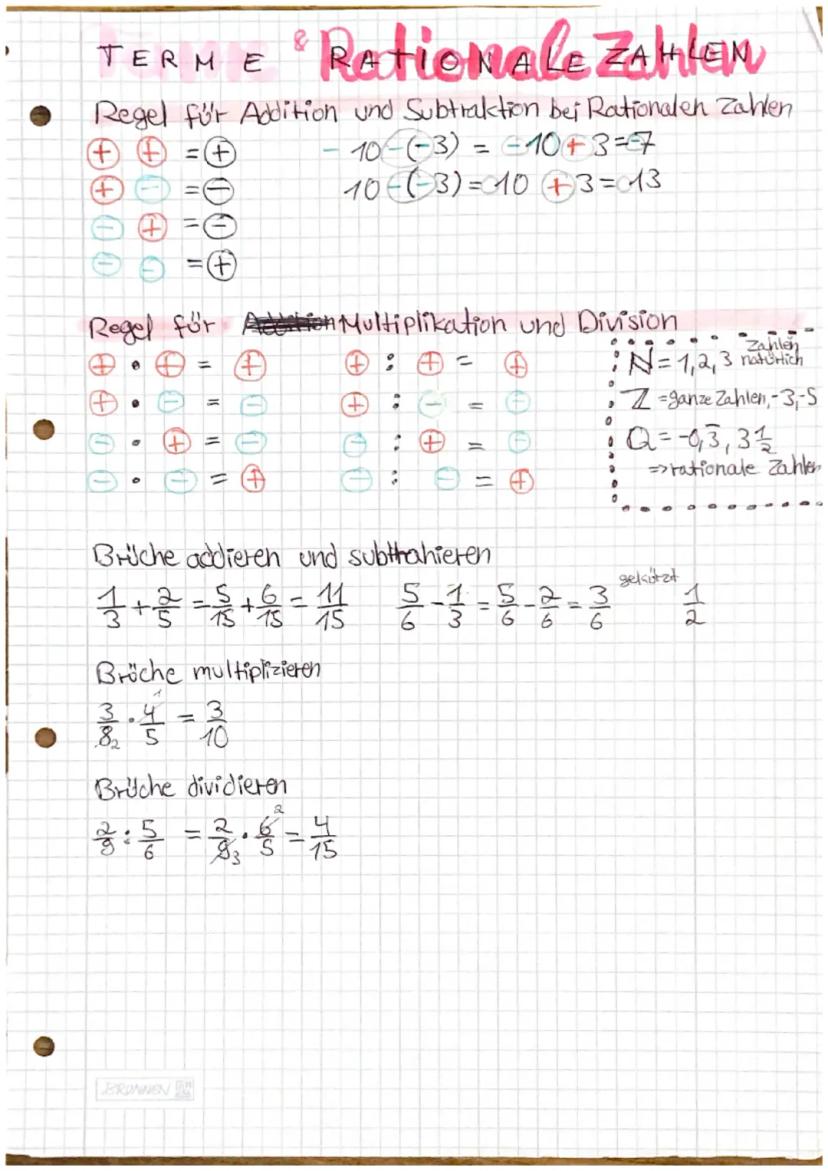 TERME & RATIONALE ZAHLEN
Regel für Addition und Subtraktion bei Rationalen Zahlen
⊕ ⊕ = ⊕   - 10 - (-3) = -10 + 3 = -7
⊕ ⊖ = ⊖   10 - (-3) = 10 + 3 = 13
⊖ ⊕ = ⊖
⊖ ⊖ = ⊕
Regel für Multiplikation und Division
⊕ · ⊕ = ⊕   ⊕ : ⊕ = ⊕
⊕ · ⊖ = ⊖   ⊕ : ⊖ = ⊖
⊖ · ⊕ = ⊖   ⊖ : ⊕ = ⊖
⊖ · ⊖ = ⊕   ⊖ : ⊖ = ⊕
ℕ = 1,2,3 natürlich Zahlen
ℤ = ganze Zahlen, -3, -5
Q = -0,3̅, 3 1/2
=> rationale Zahlen
Brüche addieren und subtrahieren
1/3 + 2/5 = 5/15 + 6/15 = 11/15   5/6 - 1/3 = 5/6 - 2/6 = 3/6 gekürzt 1/2
Brüche multiplizieren
3/8₂ · 4¹/5 = 3/10
Brüche dividieren
2/9 : 5/6 = 2/9₃ · 6²/5 = 4/15
BRUNNEN